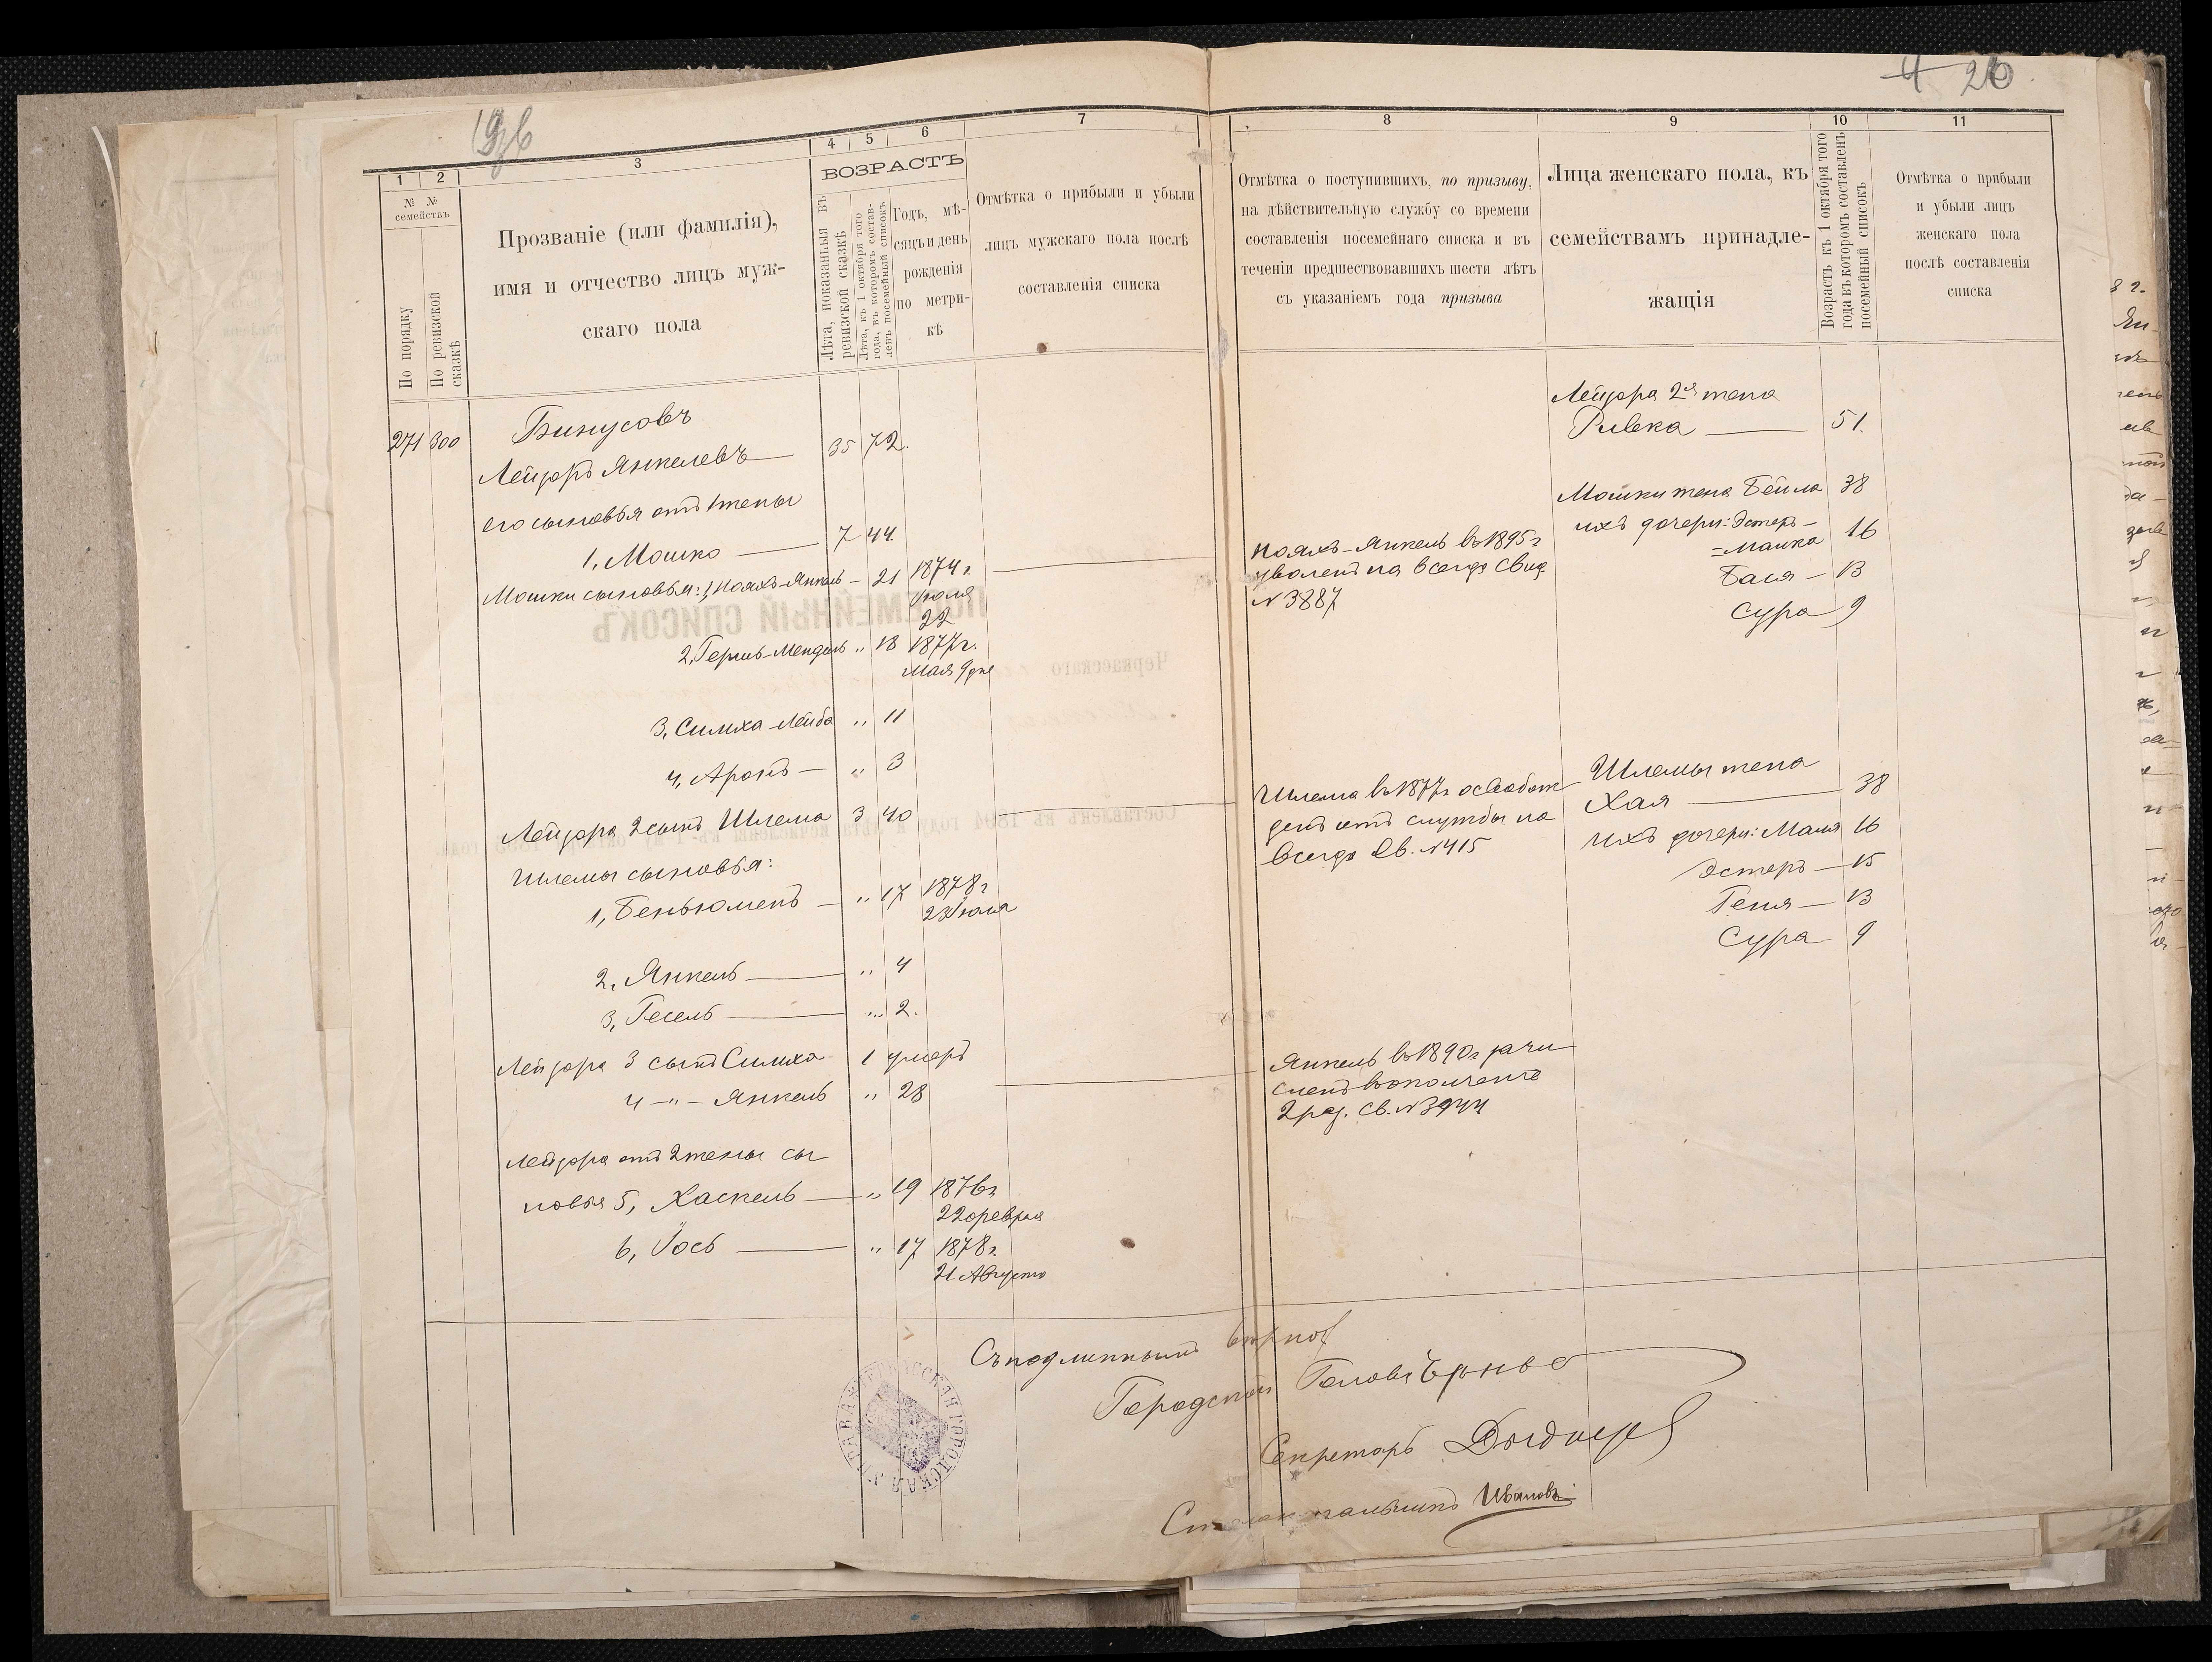 4 26
1 2 3 4 5 6 7
№ № семействъ
По порядку
По ревизской сказкѣ
Прозваніе (или фамилія),
имя и отчество лицъ муж-
скаго пола
ВОЗРАСТЪ
Лѣта, показанныя въ
ревизской сказкѣ
Лѣта, къ 1 октября того
года, въ которомъ состав-
ленъ посемейный списокъ
Годъ, мѣ-
сяцъ и день
рожденія
по метри-
кѣ
Отмѣтка о прибыли и убыли
лицъ мужскаго пола послѣ
составленія списка
271 300 Бинусовъ
Лейзоръ Янкелевъ — 35 72.
его сыновья отъ 1 жены
1, Мошко — 7 44.
Мошки сыновья: 1, Ноахъ-Янкель — 21 1874 г.
Іюля
22
2, Гершь-Мендель „ 18 1877 г.
Мая 9 дня
3, Симха-Лейба „ 11
4, Аронъ — „ 3
Лейзора 2 сынъ Шлема 3 40
Шлемы сыновья:
1, Беньюменъ — „ 17 1878 г
23 Іюля
2, Янкель — „ 4
3, Гесель — „ 2.
Лейзора 3 сынъ Симха 1 умеръ
4 —„— Янкель „ 28
Лейзора отъ 2 жены сы
новья 5, Хаскель — „ 19 1876 г
22 февраля
6, Іось — „ 17 1878 г.
21 Августа
8 9 10 11
Отмѣтка о поступившихъ, по призыву,
на дѣйствительную службу со времени
составленія посемейнаго списка и въ
теченіи предшествовавшихъ шести лѣтъ
съ указаніемъ года призыва
Лица женскаго пола, къ
семействамъ принадле-
жащія
Возрастъ къ 1 октября того
года въ которомъ составленъ
посемейный списокъ
Отмѣтка о прибыли
и убыли лицъ
женскаго пола
послѣ составленія
списка
Лейзора 2я жена
Ривка — 51.
Мошки жена Бейла 38
ихъ дочери: Эстеръ-
=Малка 16
Бася — 13
Сура 9
Ноахъ-Янкель въ 1895 г
уволенъ на всегда свид.
№ 3887
Шлемы жена
Хая — 38
ихъ дочери: Маля 16
Эстеръ — 15
Геня — 13
Сура 9
Шлема въ 1877 г освобож
денъ отъ службы на
всегда св. № 415
Янкель въ 1890 г зачи
сленъ въ ополченіе
2 раз. св. № 3944
Съ подлиннымъ вѣрно
Городской Голова
Секретарь
Столоначальникъ Ивановъ
ПОСЕМЕЙНЫЙ СПИСОКЪ
Черкасскаго